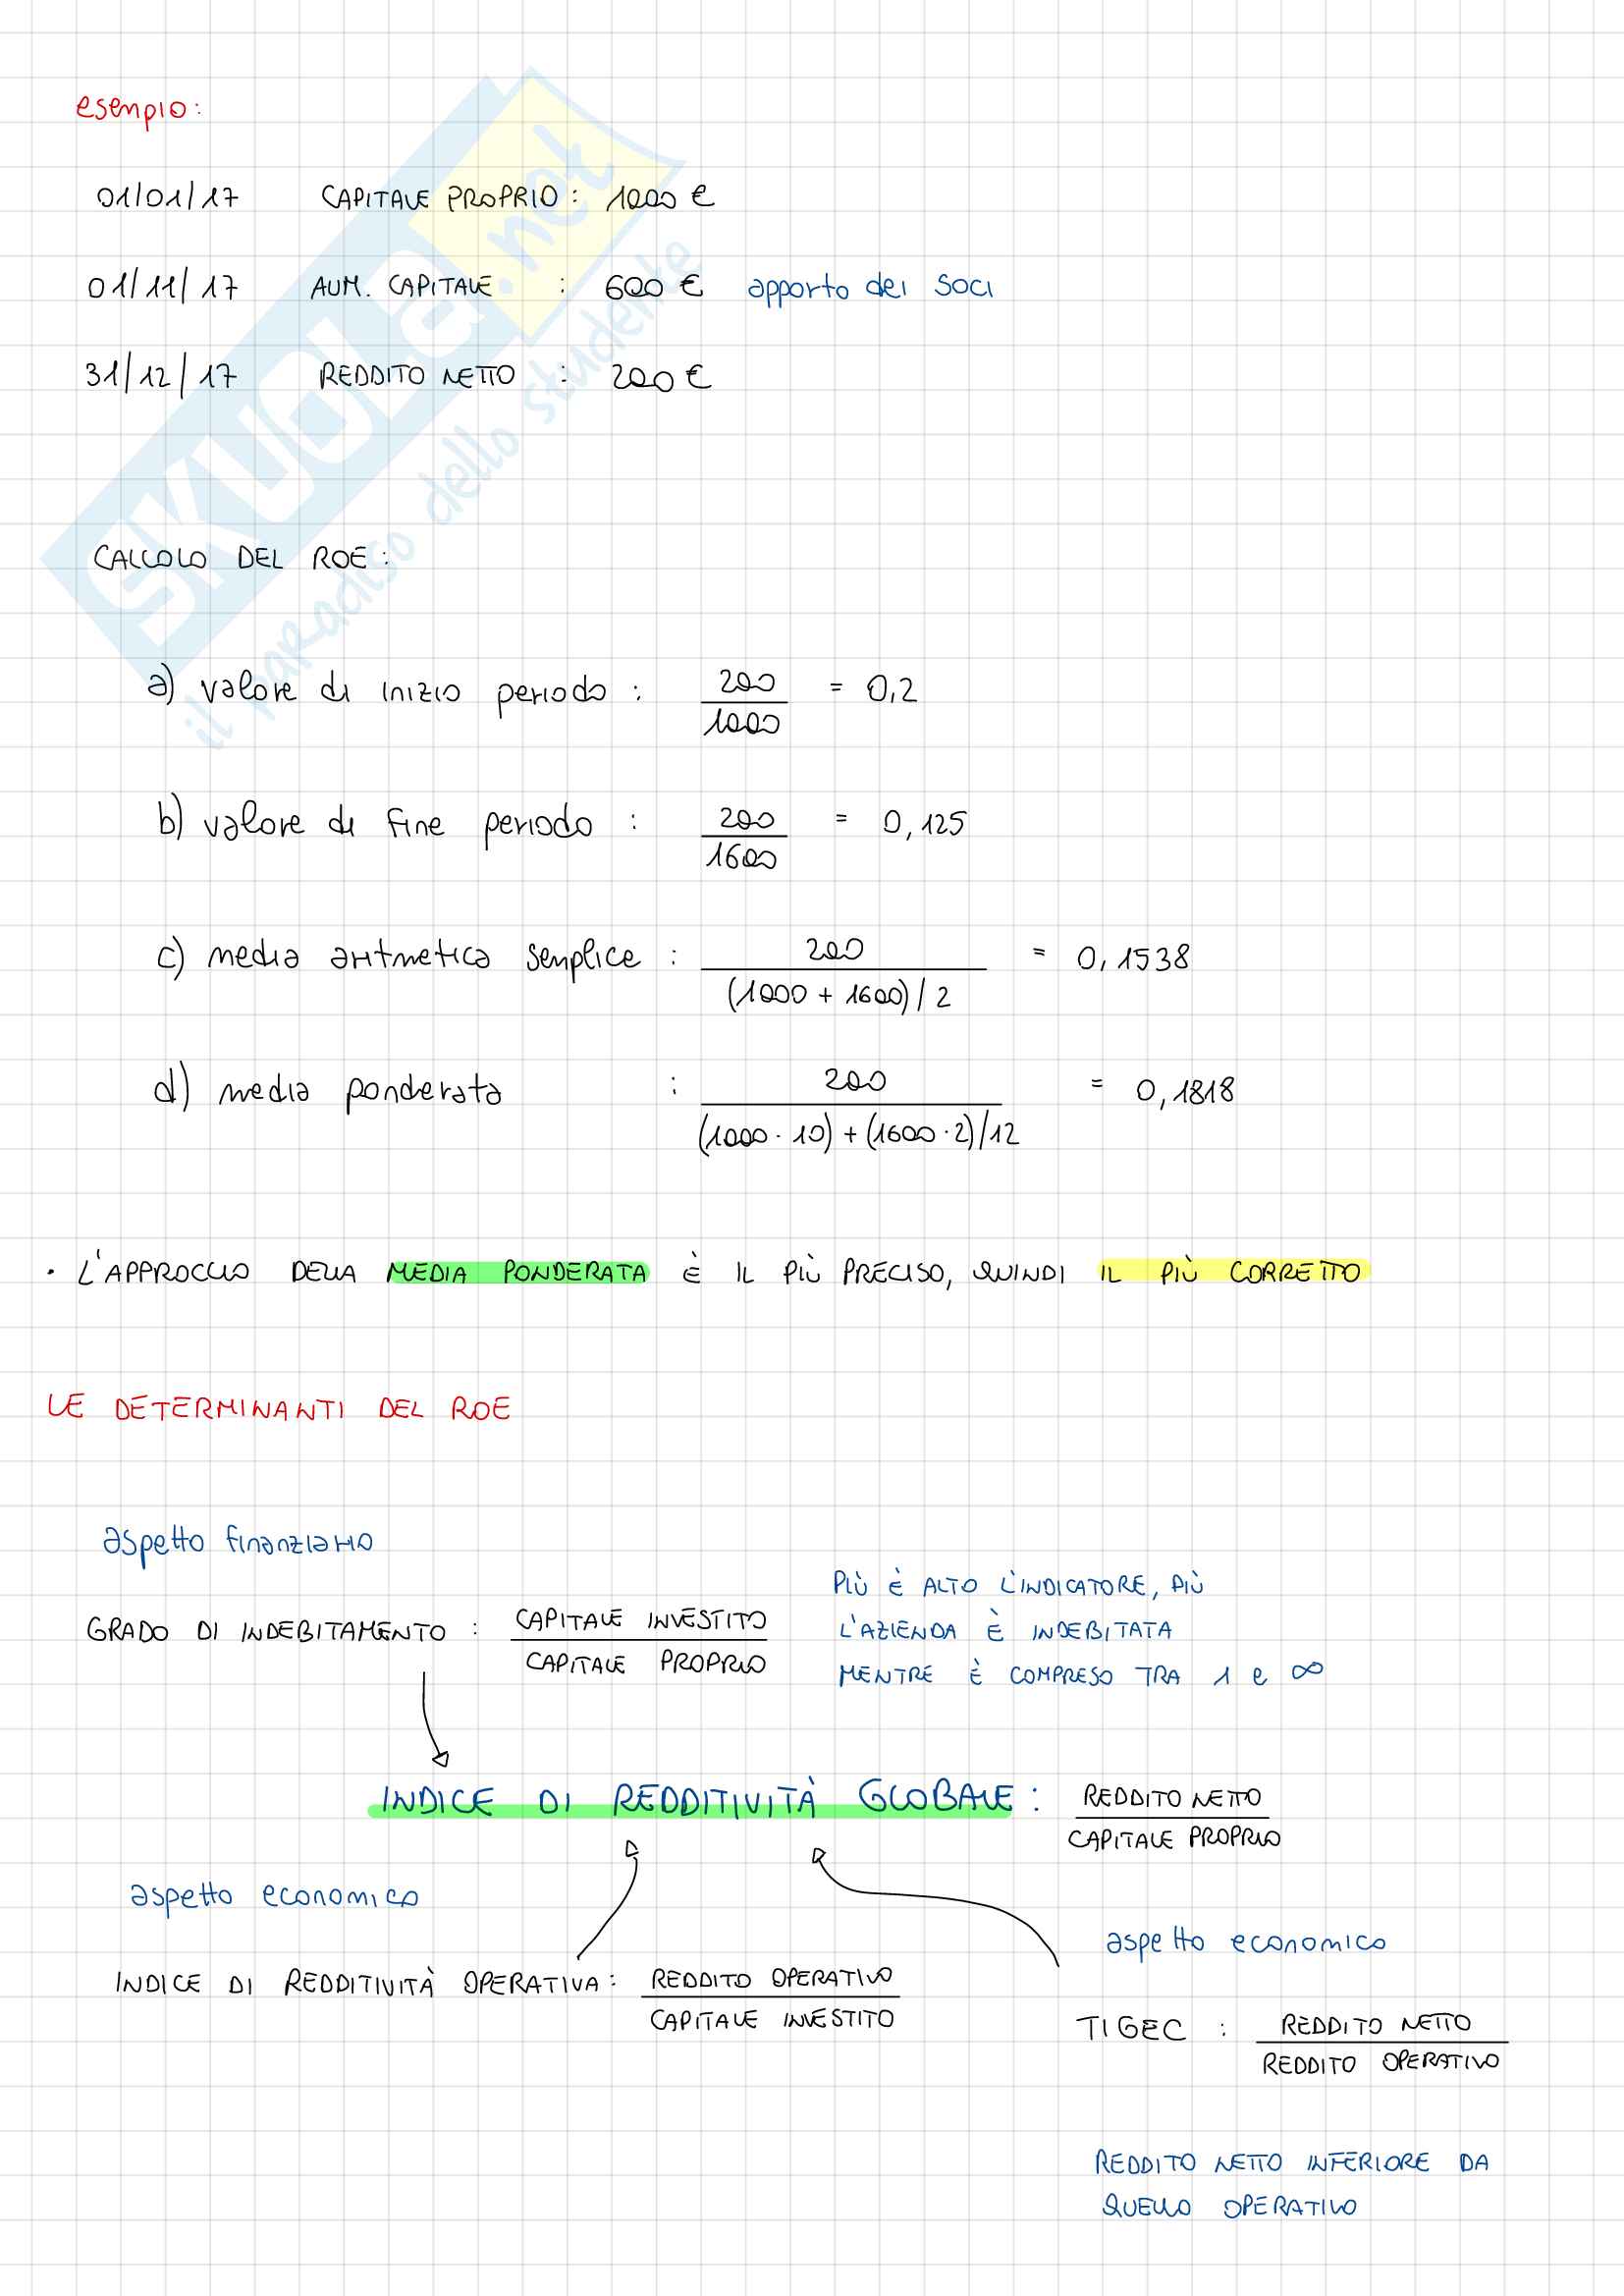 esempio:
01/01/17 CAPITALE PROPRIO: 1000 €
01/11/17 AUM. CAPITALE : 600 € apporto dei soci
31/12/17 REDDITO NETTO : 200 €
SKUOLa.net
il paradiso dello studente
CALCOLO DEL ROE:
a) valore di inizio periodo : 200/1000 = 0,2
b) valore di fine periodo : 200/1600 = 0,125
c) media aritmetica semplice : 200/(1000 + 1600)/2 = 0,1538
d) media ponderata : 200/(1000 · 10) + (1600 · 2)/12 = 0,1818
· L'APPROCCIO DELLA MEDIA PONDERATA È IL PIÙ PRECISO, QUINDI IL PIÙ CORRETTO
LE DETERMINANTI DEL ROE
aspetto finanziario
GRADO DI INDEBITAMENTO : CAPITALE INVESTITO/CAPITALE PROPRIO
PIÙ È ALTO L'INDICATORE, PIÙ
L'AZIENDA È INDEBITATA
MENTRE È COMPRESO TRA 1 e ∞
INDICE DI REDDITIVITÀ GLOBALE : REDDITO NETTO/CAPITALE PROPRIO
aspetto economico
INDICE DI REDDITIVITÀ OPERATIVA : REDDITO OPERATIVO/CAPITALE INVESTITO
aspetto economico
TIGEC : REDDITO NETTO/REDDITO OPERATIVO
REDDITO NETTO INFERIORE DA
QUELLO OPERATIVO